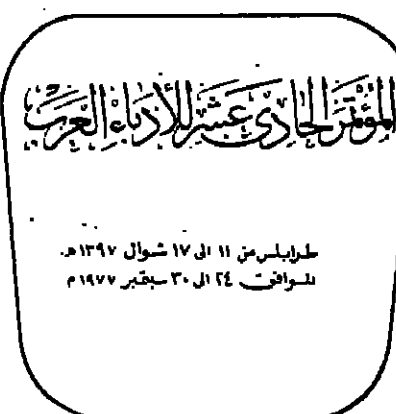 المؤتمر الحادي عشر للأدباء العرب
طرابلس من ١١ الى ١٧ شوال ١٣٩٧هـ.
الموافق ٢٤ الى ٣٠ سبتمبر ١٩٧٧م